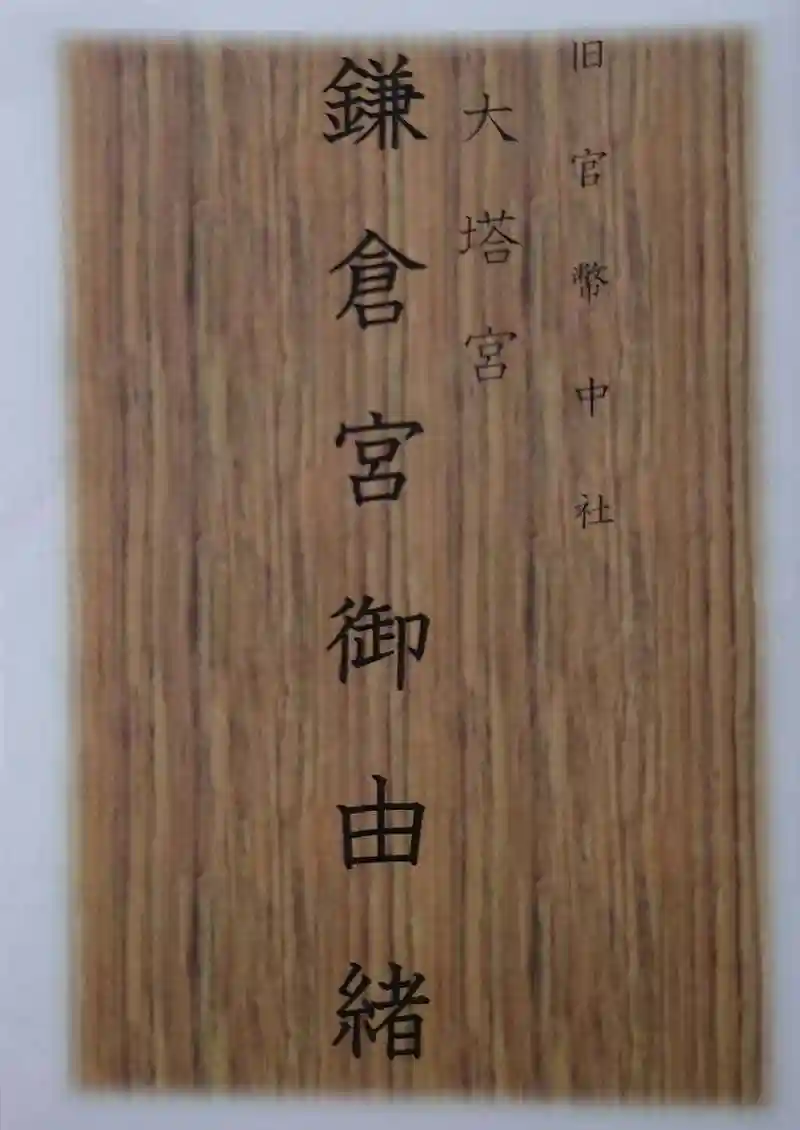 旧官幣中社
大塔宮
鎌倉宮御由緒